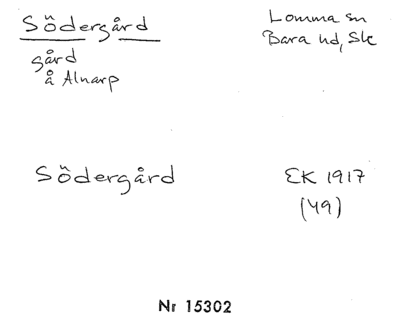 Södergård
Lomma sn
Bara hd, Sk
gård
å Alnarp
Södergård
EK 1917
(49)
Nr 15302